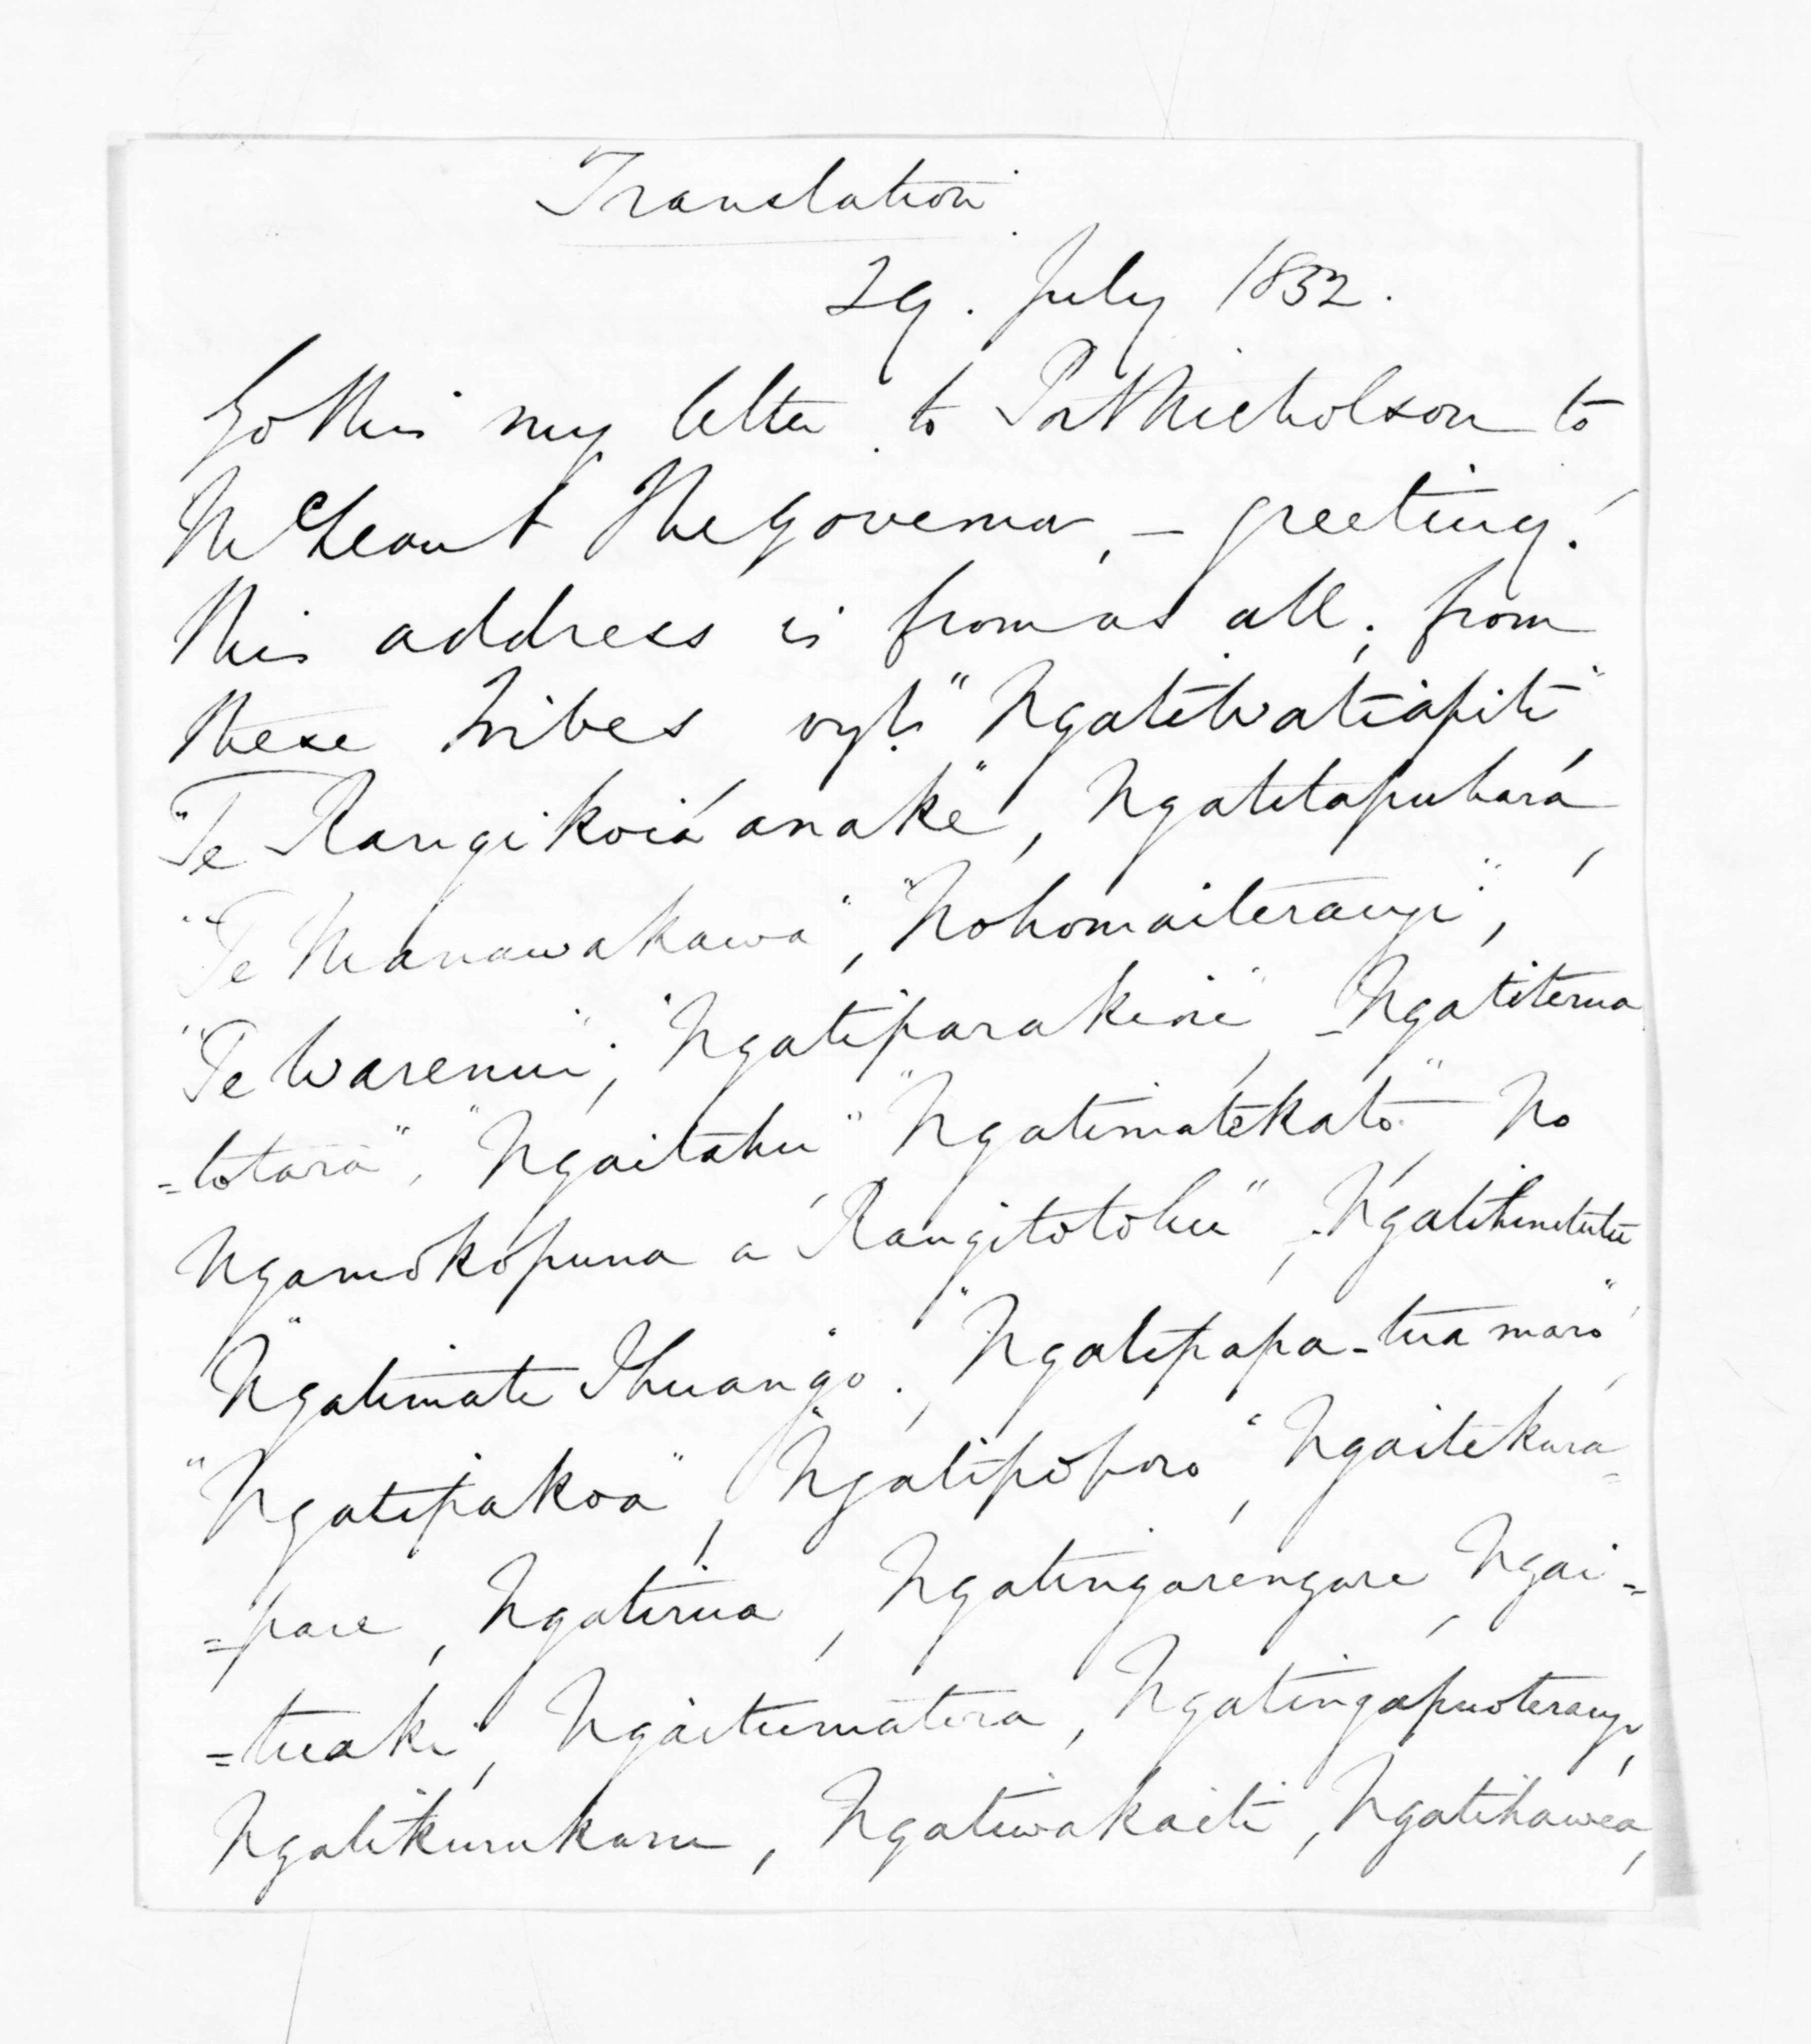 Translation
29. July 1852.
Go this my letter to Port Nicholson to
McLean & the Governor, – greeting!
This address is from us all; from
these tribes vizt. "Ngatiwatiapiti",
"Te Rangikoia anake", Ngatitapuhara,
"Te Manawakawa", "Nohomaiterangi",
"Te Warenui"; "Ngatiparakeine", – Ngatiterua
=totara", "Ngaitahu" "Ngatimatekato" – No
Ngamokopuna a "Rangitotohu", Ngatihinetutu
"Ngatimate Ihuango, "Ngatipapa-tua maro",
"Ngatipakoa", "Ngatipoporo", Ngaitekura=
=pare, Ngatirua, Ngatingarengare, Ngai=
=tuaki, Ngaitumatera, Ngatingapuoterangi,
Ngatikurukuru, Ngatiwakaiti, Ngatihawea,